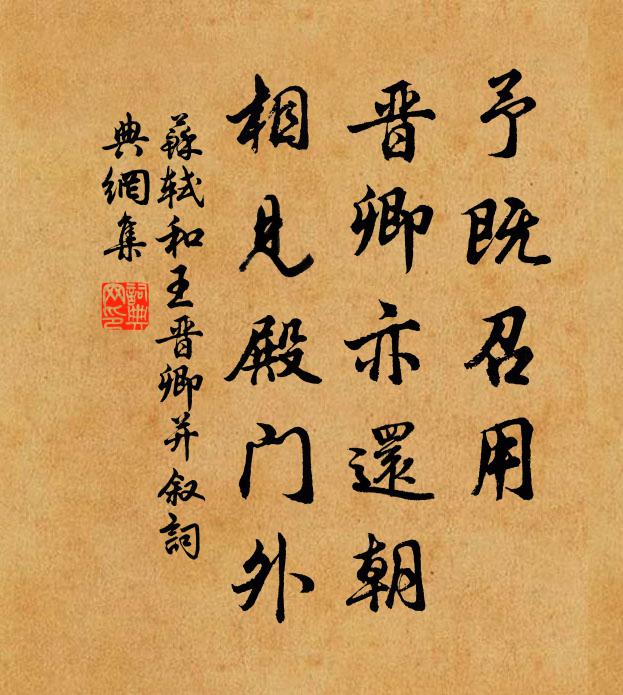 予既召用
晋卿亦還朝
相見殿门外
蘇轼和王晋卿并叙詞
典網集
詞典網印